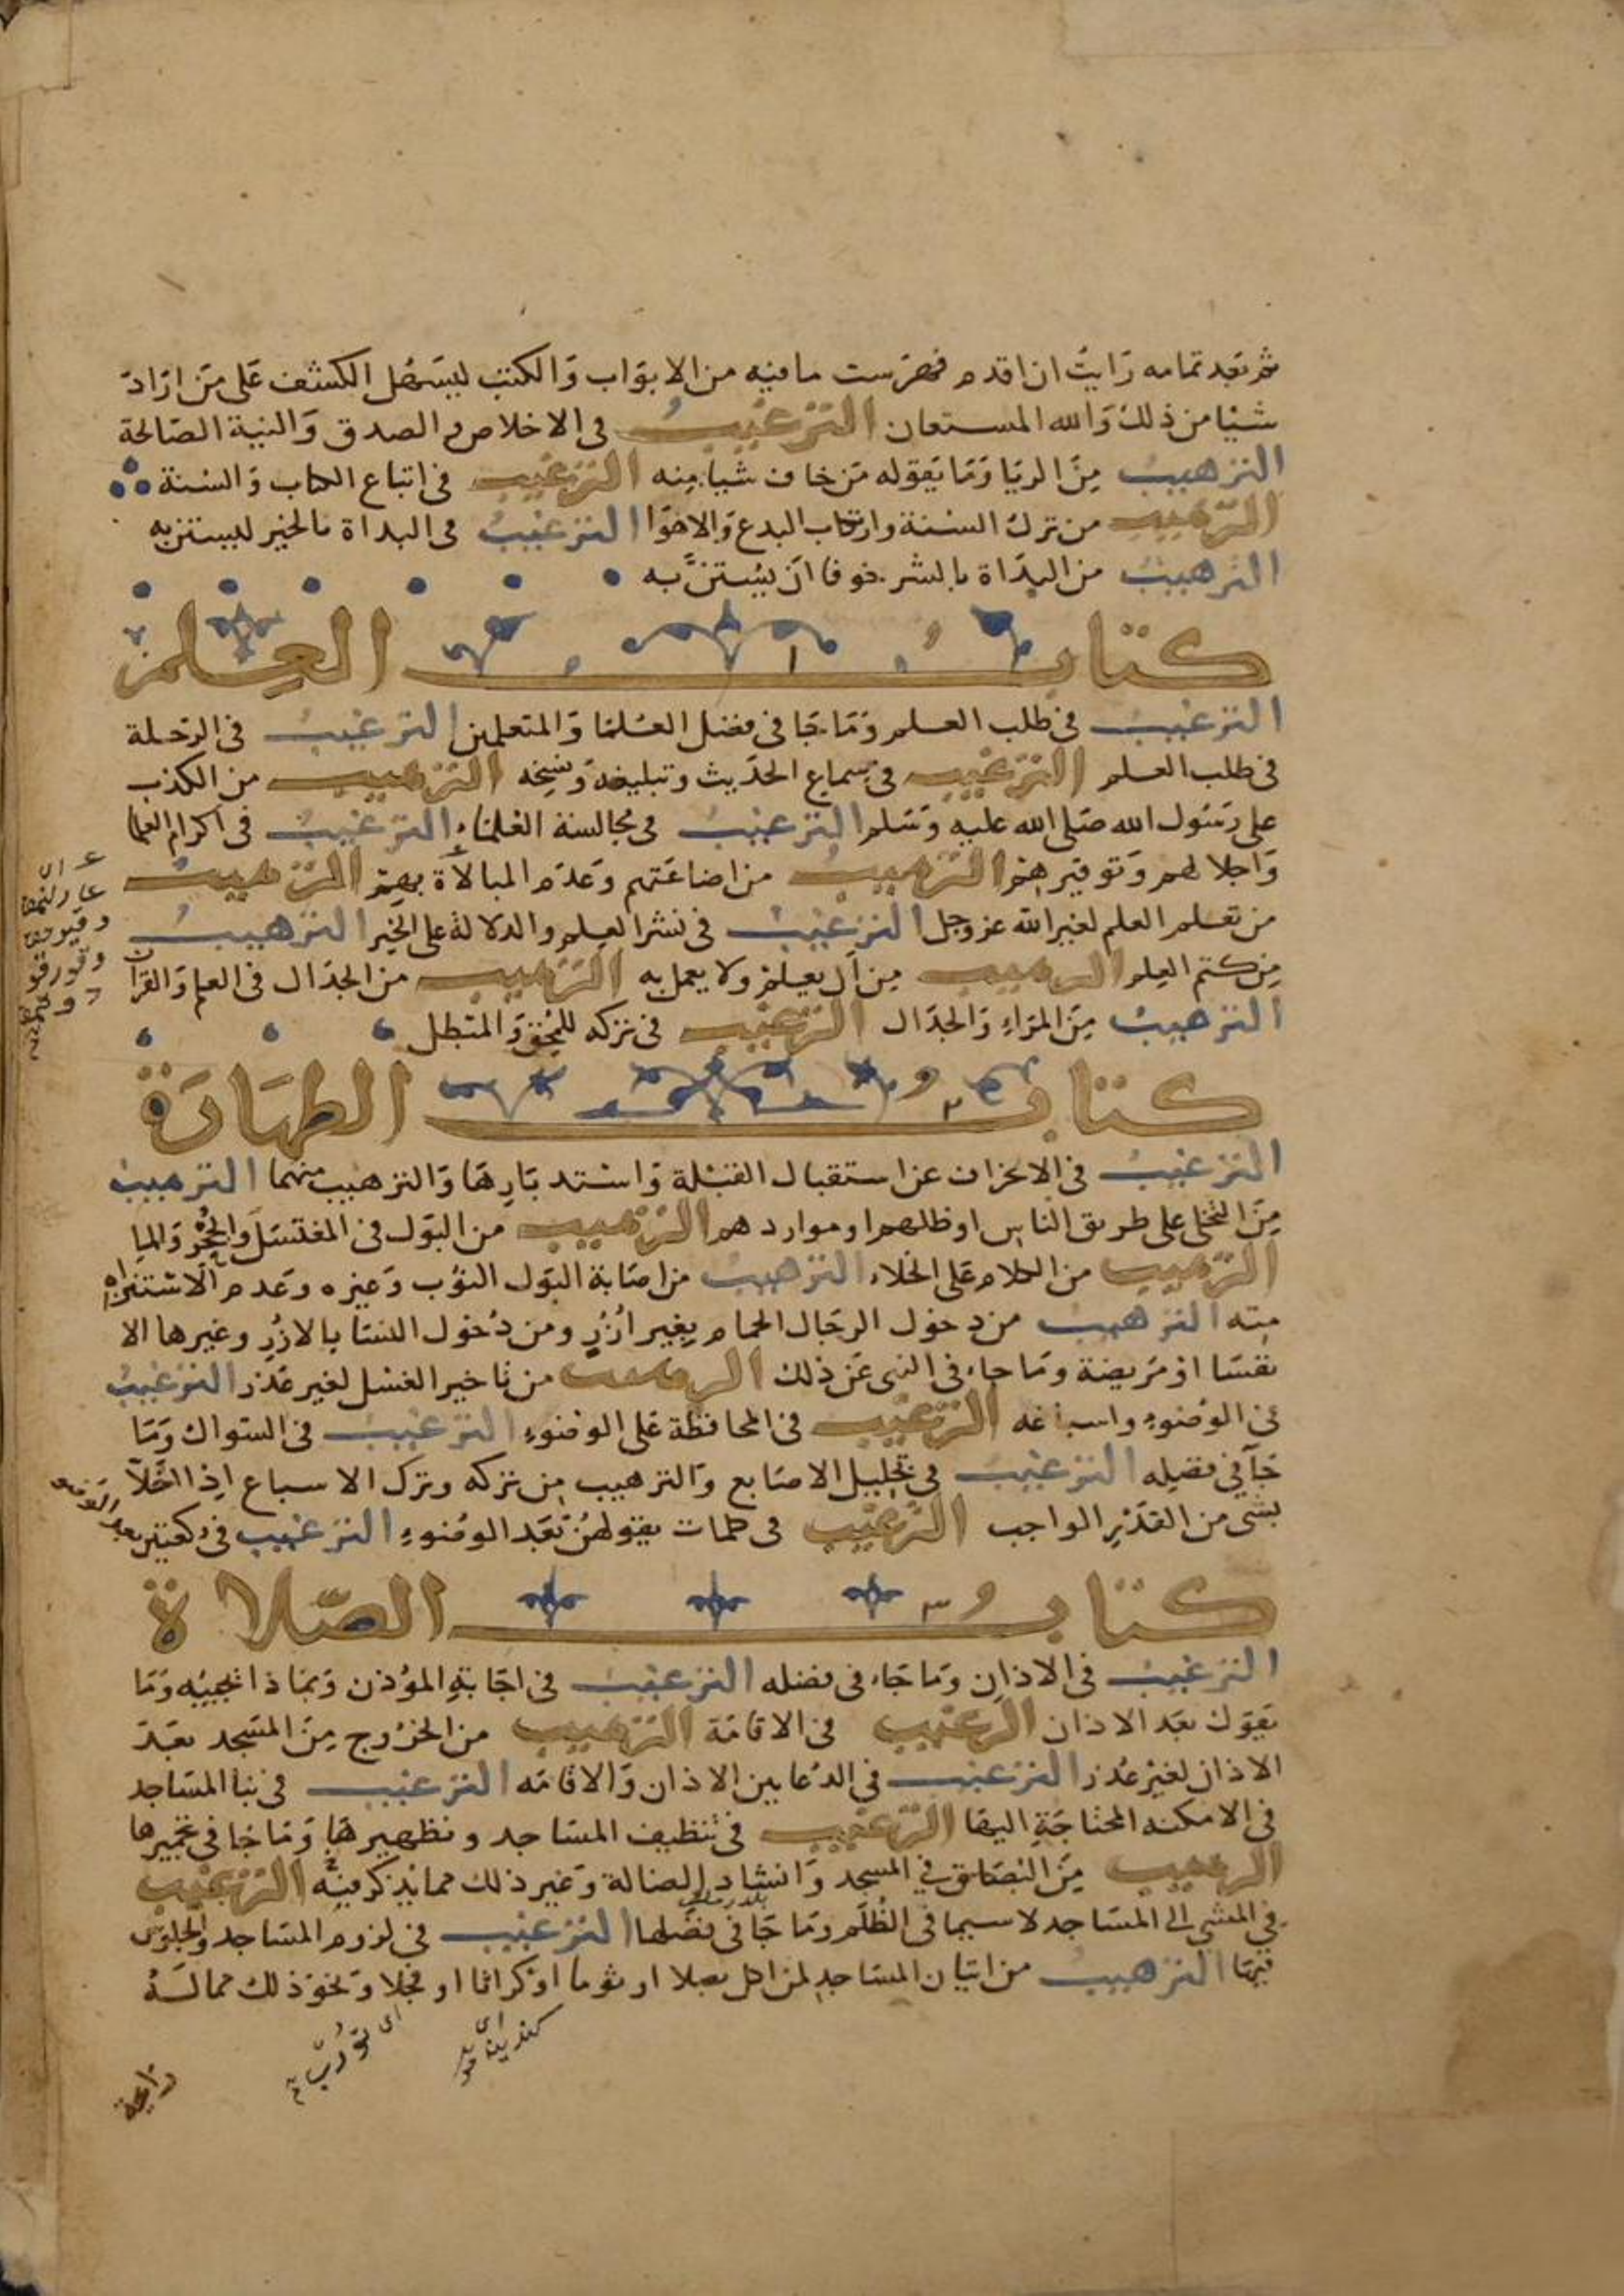 ثم بعد تمامه رَايتُ ان اقدم فهرست ما فيه من الابوَاب وَالكتب ليسَهُل الكشف عَلى مَن ارَادَ
شيا من ذلك وَالله المستعان الترغيبُ فى الاخلاص والصدق وَالنية الصَالحة
الترهيبُ مِنَ الريا وَمَا يَقوله مَن خاف شيا مِنه الترغيب فى اتباع الكتاب وَالسُنة
الترهيب من ترك السُنة وارتكاب البدع وَالاهوَا الترغيبُ فى البداة بالخير ليستن به
الترهيبُ من البدَاة بالشر خوفا ان يُستنَّ به
كتابُ ١ العِلم
الترغيب فى طلب العلم وَمَا جَا فى فضل العُلمَا وَالمتعلمين الترغيبُ فى الرَحلة
فى طلب العلم الترغيب فى سماع الحَديث وتبليغه وَنسخه الترهيب من الكذب
على رسُول الله صَلى الله عليه وَسَلم الترغيبُ فى مجالسة العُلمَاءِ الترغيبُ فى اكرام العلما
وَاجلالهم وَتوقيرهم الترهيبُ من اضاعَتهم وَعدَم المبالاة بهم الترهيبُ
من تعلم العلم لغير الله عز وجل الترغيبُ فى نشر العِلم والدلالة على الخير الترهيبُ
مِن كتم العِلم الترهيب مِن ان يعلم ولا يعمل به الترهيب من الجدَال فى العلم وَالقرآن
الترهيبُ مِنَ المرَاءِ وَالجدَال الترغيب فى تركه للمُحِق وَالمبطل
كتابُ ٢ الطهَارَة
الترغيبُ فى الانحراف عن استقبال القبْلة وَاسْتدبَارِهَا وَالترهيب منهما الترهيبُ
مِنَ التخلى على طريق الناس او ظلهم او مواردهم الترهيب من البَول فى المغتسَل وَالجُحْر وَالما
الترهيب من الكلام عَلى الخلاء الترهيبُ من اصَابة البَول الثوب وَغيره وَعدم الاستنزاه
منه الترهيب من دخول الرجَال الحمام بِغير اُزُرٍ ومن دُخول النسَا بالازُرِ وغيرها الا
نفسَا اوْ مَريضة وَمَا جاء فى النهى عَن ذلك الترهيب من تاخير الغسْل لغير عُذر الترغيبُ
فى الوُضوءِ واسباغه الترغيب فى المحافظة عَلى الوُضوءِ الترغيب فى السّواك وَمَا
جَآ فى فضله الترغيبُ فى تخليل الاصَابع وَالترهيب مِن تركه وترك الاسباع اِذا اخَلّ
بشى من القدْرِ الواجب الترغيب فى كلمات يقولهُنَّ بَعد الوضوءِ الترغيب فى ركعتين بعد الوضوء
كتابُ ٣ الصّلاة
الترغيبُ فى الاذان وَمَا جَاء فى فضله الترغيبُ فى اجَابةِ المؤذن وَبمَاذا يُجيبُه وَمَا
يَقول بَعد الاذان الترغيب فى الاقامَة الترهيب من الخرُوج مِنَ المَسْجد بَعدَ
الاذان لغير عُذر الترغيب فى الدُعا بين الاذان وَالاقامَه الترغيب فى بنا المسَاجد
فى الامكنه المحتاجَةِ اليهَا الترغيب فى تنظيف المسَاجد وتطهيرهَا وَمَا جا فى تجميرها
الترهيب مِنَ البُصَاق في المسجد وَانشاد الضالة وَغير ذلك مما يذكر فيه الترغيب
في المشى الى المسَاجد لا سيما فى الظُلَم وَمَا جَا فى فضلها الترغيب فى لزوم المسَاجد والجلوس
فيهَا الترهيبُ من اتيان المسَاجد لمن اكل بصلا او ثوما اوْ كراثا او فجلا وَنحوَ ذلك مما لهُ
رائحة